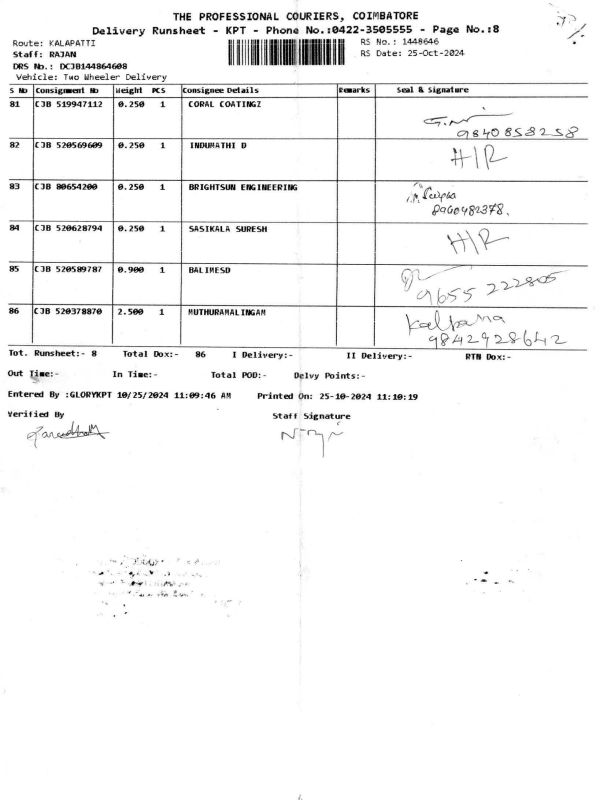 THE PROFESSIONAL COURIERS, COIMBATORE
Delivery Runsheet - KPT - Phone No.:0422-3505555 - Page No.:8
Route: KALAPATTI RS No.: 1448646
Staff: RAJAN RS Date: 25-Oct-2024
DRS No.: DCJB144864608
Vehicle: Two Wheeler Delivery
S No Consignment No Weight PCS Consignee Details Remarks Seal & Signature
81 CJB 519947112 0.250 1 CORAL COATINGZ
9840858258
82 CJB 520569609 0.250 1 INDUMATHI D H/R
83 CJB 80654200 0.250 1 BRIGHTSUN ENGINEERING
8960482378.
84 CJB 520628794 0.250 1 SASIKALA SURESH H/R
85 CJB 520589787 0.900 1 BALIMESD
9655 222805
86 CJB 520378870 2.500 1 MUTHURAMALINGAM Kalpana
9842928642
Tot. Runsheet:- 8 Total Dox:- 86 I Delivery:- II Delivery:- RTN Dox:-
Out Time:- In Time:- Total POD:- Delvy Points:-
Entered By :GLORYKPT 10/25/2024 11:09:46 AM Printed On: 25-10-2024 11:10:19
Verified By Staff Signature